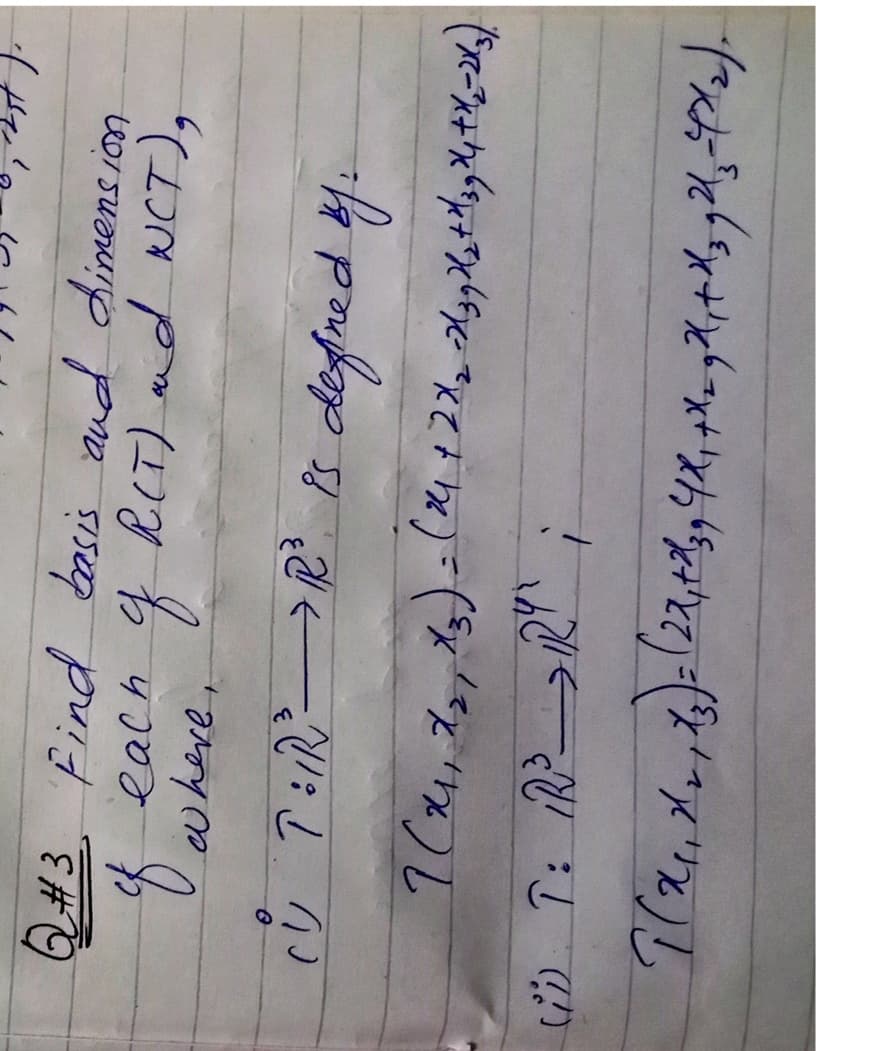 Q#3 Find basis and dimension
of each of R(T) and N(T),
where,
(i) T: ℝ³ → ℝ³ is defined by.
T(x₁, x₂, x₃) = (x₁ + 2x₂ - x₃, x₂ + x₃, x₁ + x₂ - 2x₃).
(ii) T: ℝ³ → ℝ⁴ ;
T(x₁, x₂, x₃) = (2x₁ + x₃, 4x₁ + x₂, x₁ + x₃, x₃ - 4x₂).